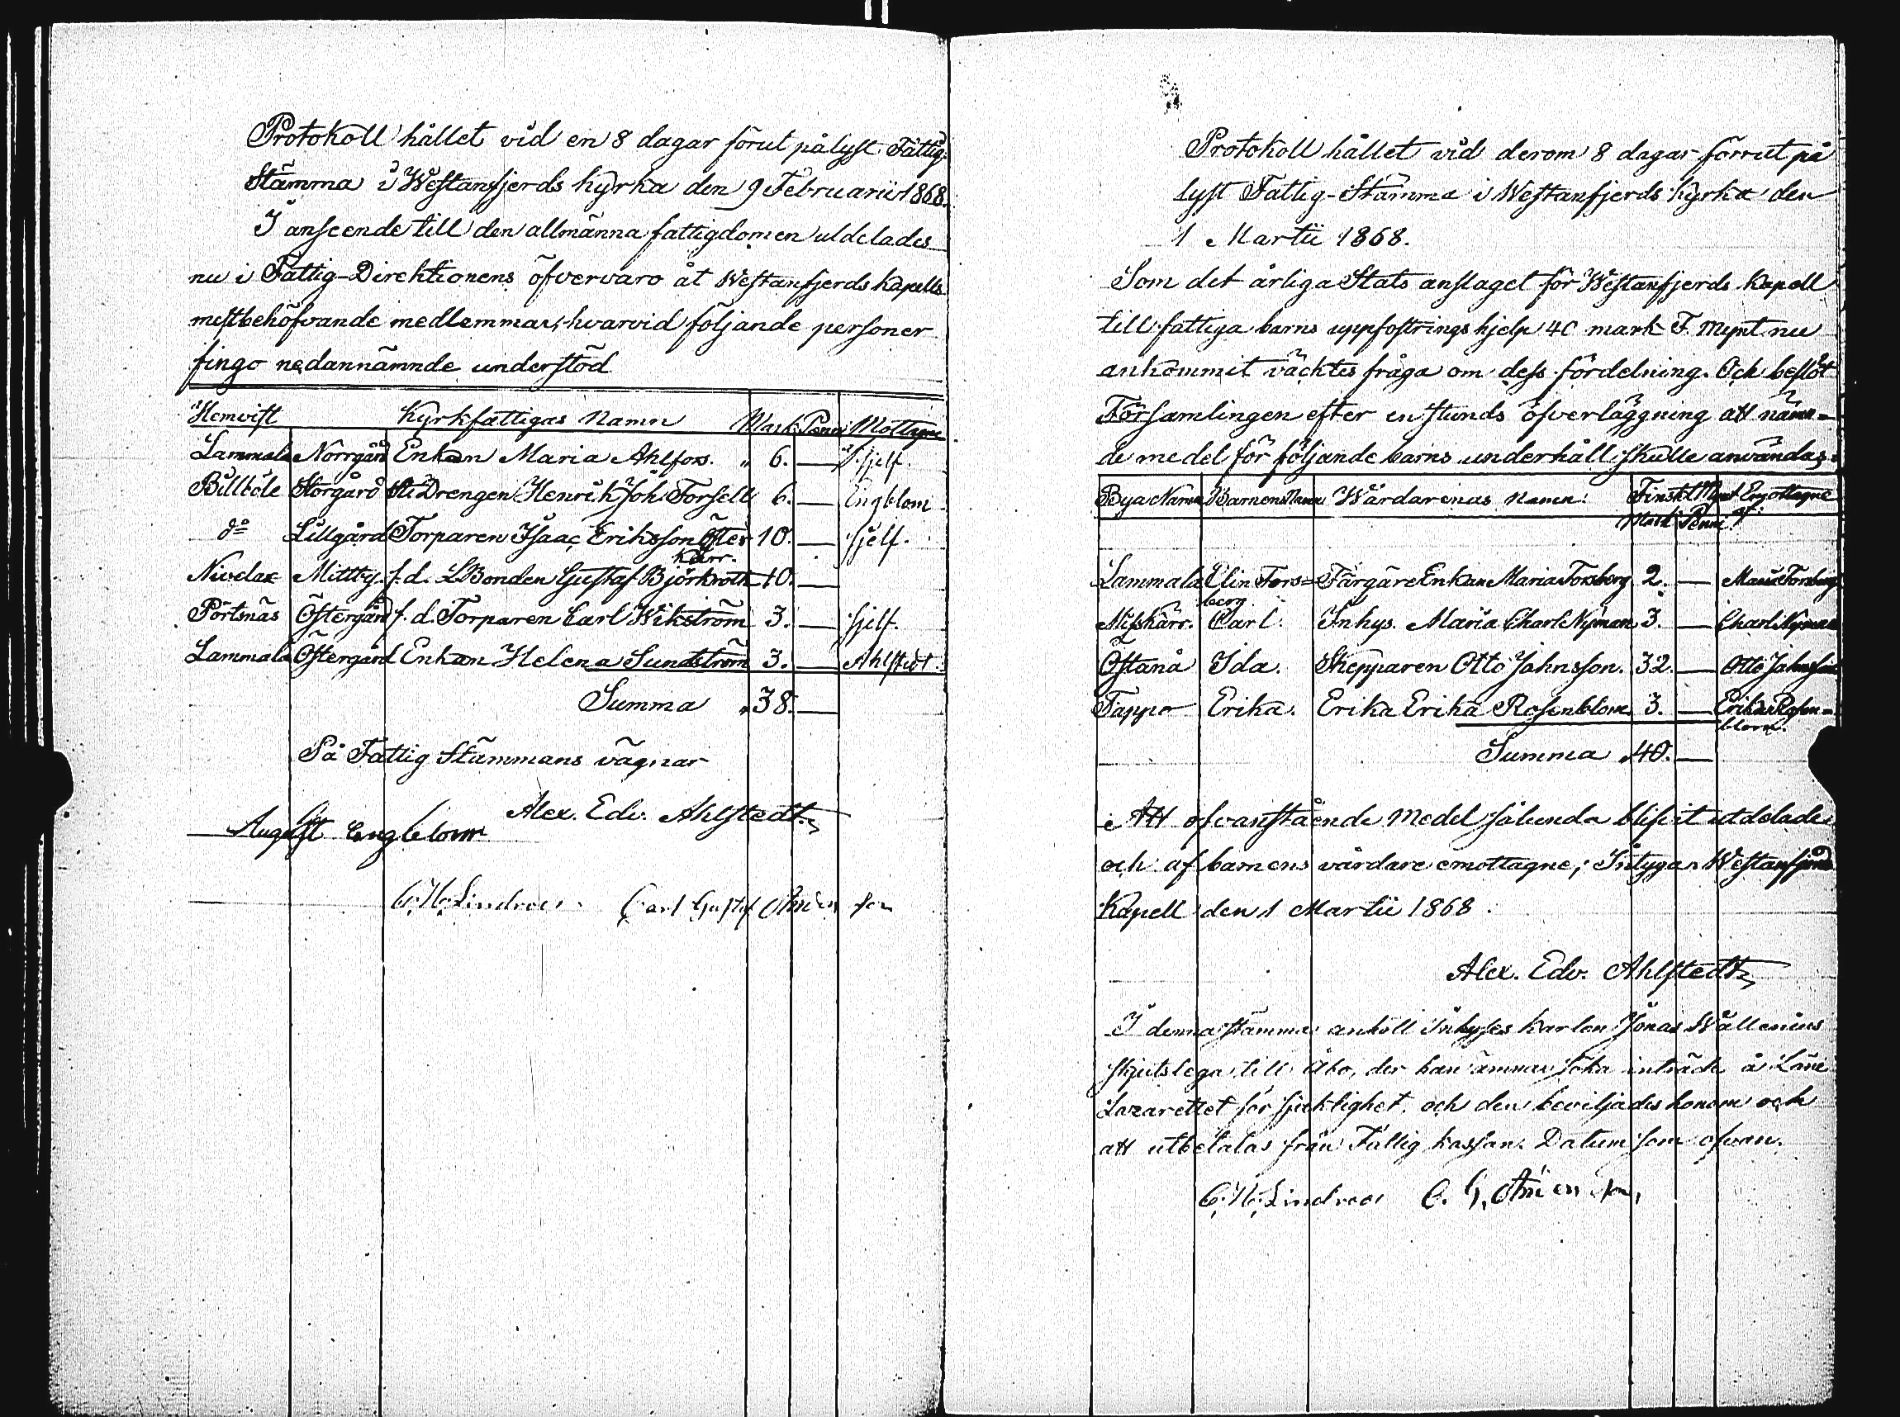 Protokoll hållet vid en 8 dagar förut pålyst Fattig-
Stämma i Westanfjerds kyrka den 9 Februarii 1868.
I anseende till den allmänna fattigdomen utdelades
nu i Fattig-Direktionens öfvervaro åt Westanfjerds Kapells
mestbehöfvande medlemmar, hvarvid följande personer
fingo nedannämnde understöd
Hemvist Kyrkfattigas Namn Mark Penni Mottagne
Lammala Norrgård Enkan Maria Ahlfors. " 6. — Sjelf.
Billböle Storgård Drengen Henrik Joh. Forsell 6. — Engblom
do Lillgård Torparen Isaac Eriksson Öster 10. — sjelf.
kärr.
Nivelax Mittby. f.d. Bonden Gustaf Björkroth 10. —
Pörtsnäs Östergård f.d. Torparen Carl Wikström 3. — sjelf.
Lammala Östergård Enkan Helena Sundström 3. — Ahlstedt.
Summa " 38. —
På Fattig Stämmans vägnar
Alex. Edv. Ahlstedt.
August Engblom
C. W. Lindroos Carl Gustaf
Protokoll hållet vid derom 8 dagar förrut på
lyst Fattig-Stämma i Westanfjerds kyrka den
1 Martii 1868.
Som det årliga Stats anslaget för Westanfjerds Kapell
till fattiga barns uppfostringshjelp 40 mark F. Mynt nu
ankommit väcktes fråga om dess fördelning. Och beslöt
Församlingen efter en stunds öfverläggning att nämn-
de medel för följande barns underhåll skulle användas:
Bya Namn Barnens Namn Wårdarenas Namn: Finskt Mynt Emottagne
Mark Penni af:
Lammala Elin Fors- Färgare Enkan Maria Forsberg 2. — Maria Forsberg
berg.
Misskärr. Carl. Inhys. Maria Charl. Nyman 3. — Charl. Nyman
Östanå Ida. Skepparen Otto Johnsson. 32. — Otto Johnsson
Tappo Erika. Erika Erika Rosenblom 3. — Erika Rosen-
blom.
Summa " 40. —
Att ofvanstående Medel sålunda blifvit utdelade
och af barnens vårdare emottagne; Intygar Westanfjerds
Kapell den 1 Martii 1868.
Alex. Edv. Ahlstedt
I denna stämma anhöll Inhyses karlen Jonas Wallenius
skjutslega till Åbo, der han ämnar söka inträde å Läne
Lazarettet för sjuklighet, och den beviljades honom och
att utbetalas från Fattig kassan. Datum som ofvan.
C. W. Lindroos C. G.